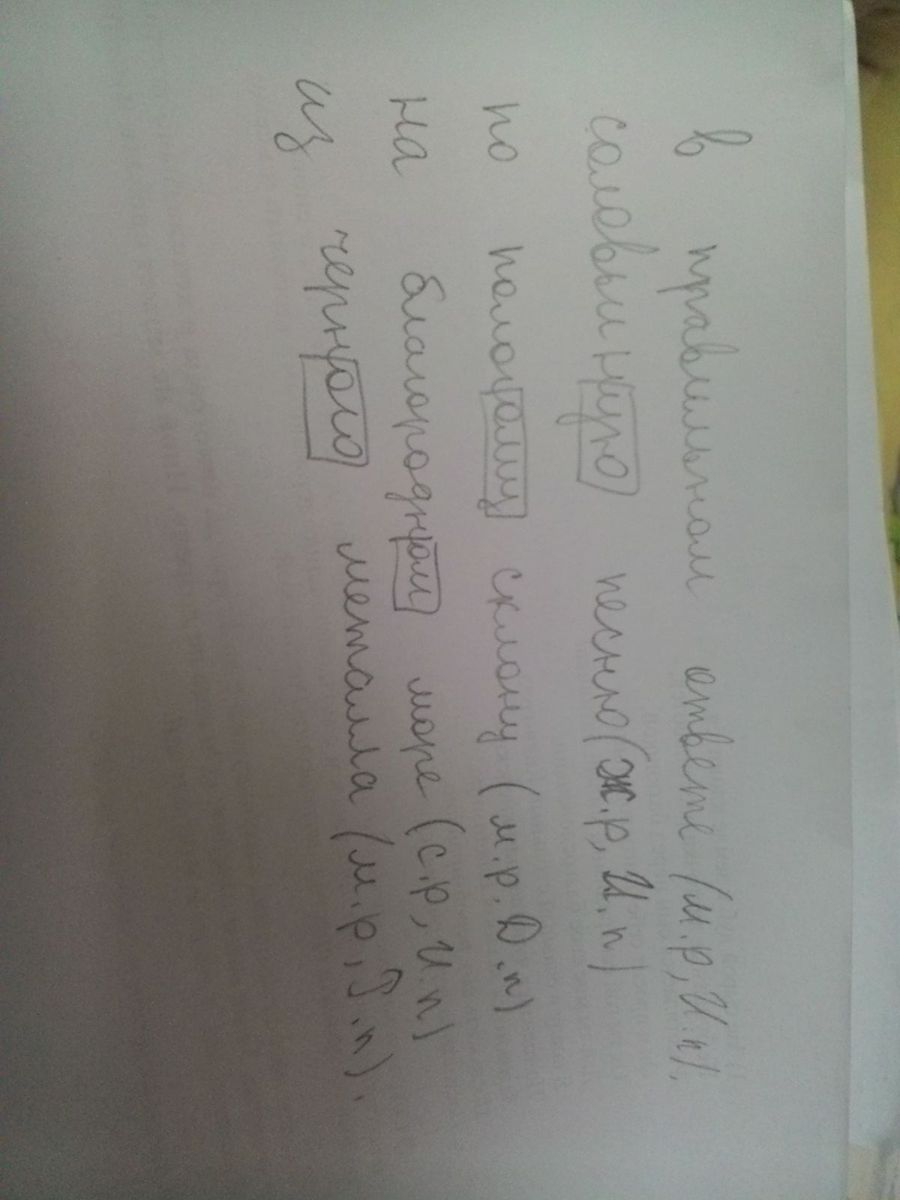 в правильном ответе (м.р, И.п).
соловьиную песню (ж.р, И.п)
по пологому склону (м.р. Д.п)
на благородном море (с.р, И.п)
из черного металла (м.р, Т.п).